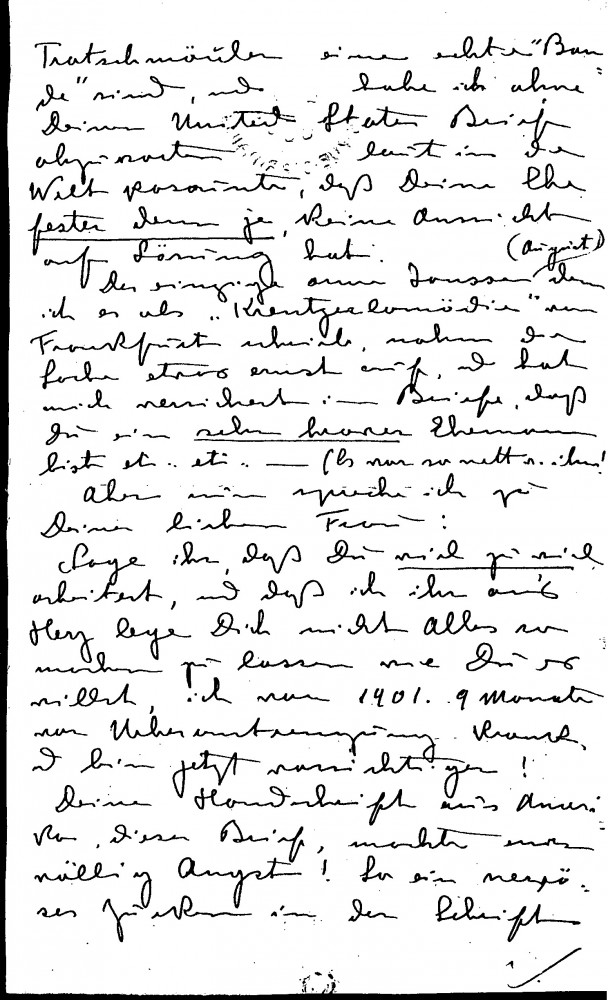 Tratschmäuler eine echte "Ban=
de" sind, und habe ich ohne
Deinen United States Brief
abzuwarten laut in die
Welt posaunt, daß Deine Ehe
fester denn je, keine Aussicht
auf Lösung hat. (August)
Der einzige arme Janssen dem
ich es als "Kreutzerkomödie" von
Frankfurt schrieb, nahm die
Sache etwas ernst auf, und hat
mich versichert im Briefe, daß
Du ein sehr braver Ehemann
bist etc.. etc.. — (Es war so nett v. ihm!
Aber nun spreche ich zu
Deiner lieben Frau:
Sage ihr, daß Du viel zu viel
arbeitest, und daß ich ihr an's
Herz lege Dich nicht Alles so
machen zu lassen wie Du es
willst, ich war 1901. 9 Monate
vor Ueberanstrengung krank,
und bin jetzt vorsichtiger!
Deine Handschrift aus Ameri=
ka, dieser Brief, machte mir
völlig Angst! So ein nervö=
ses Zucken in der Schrift